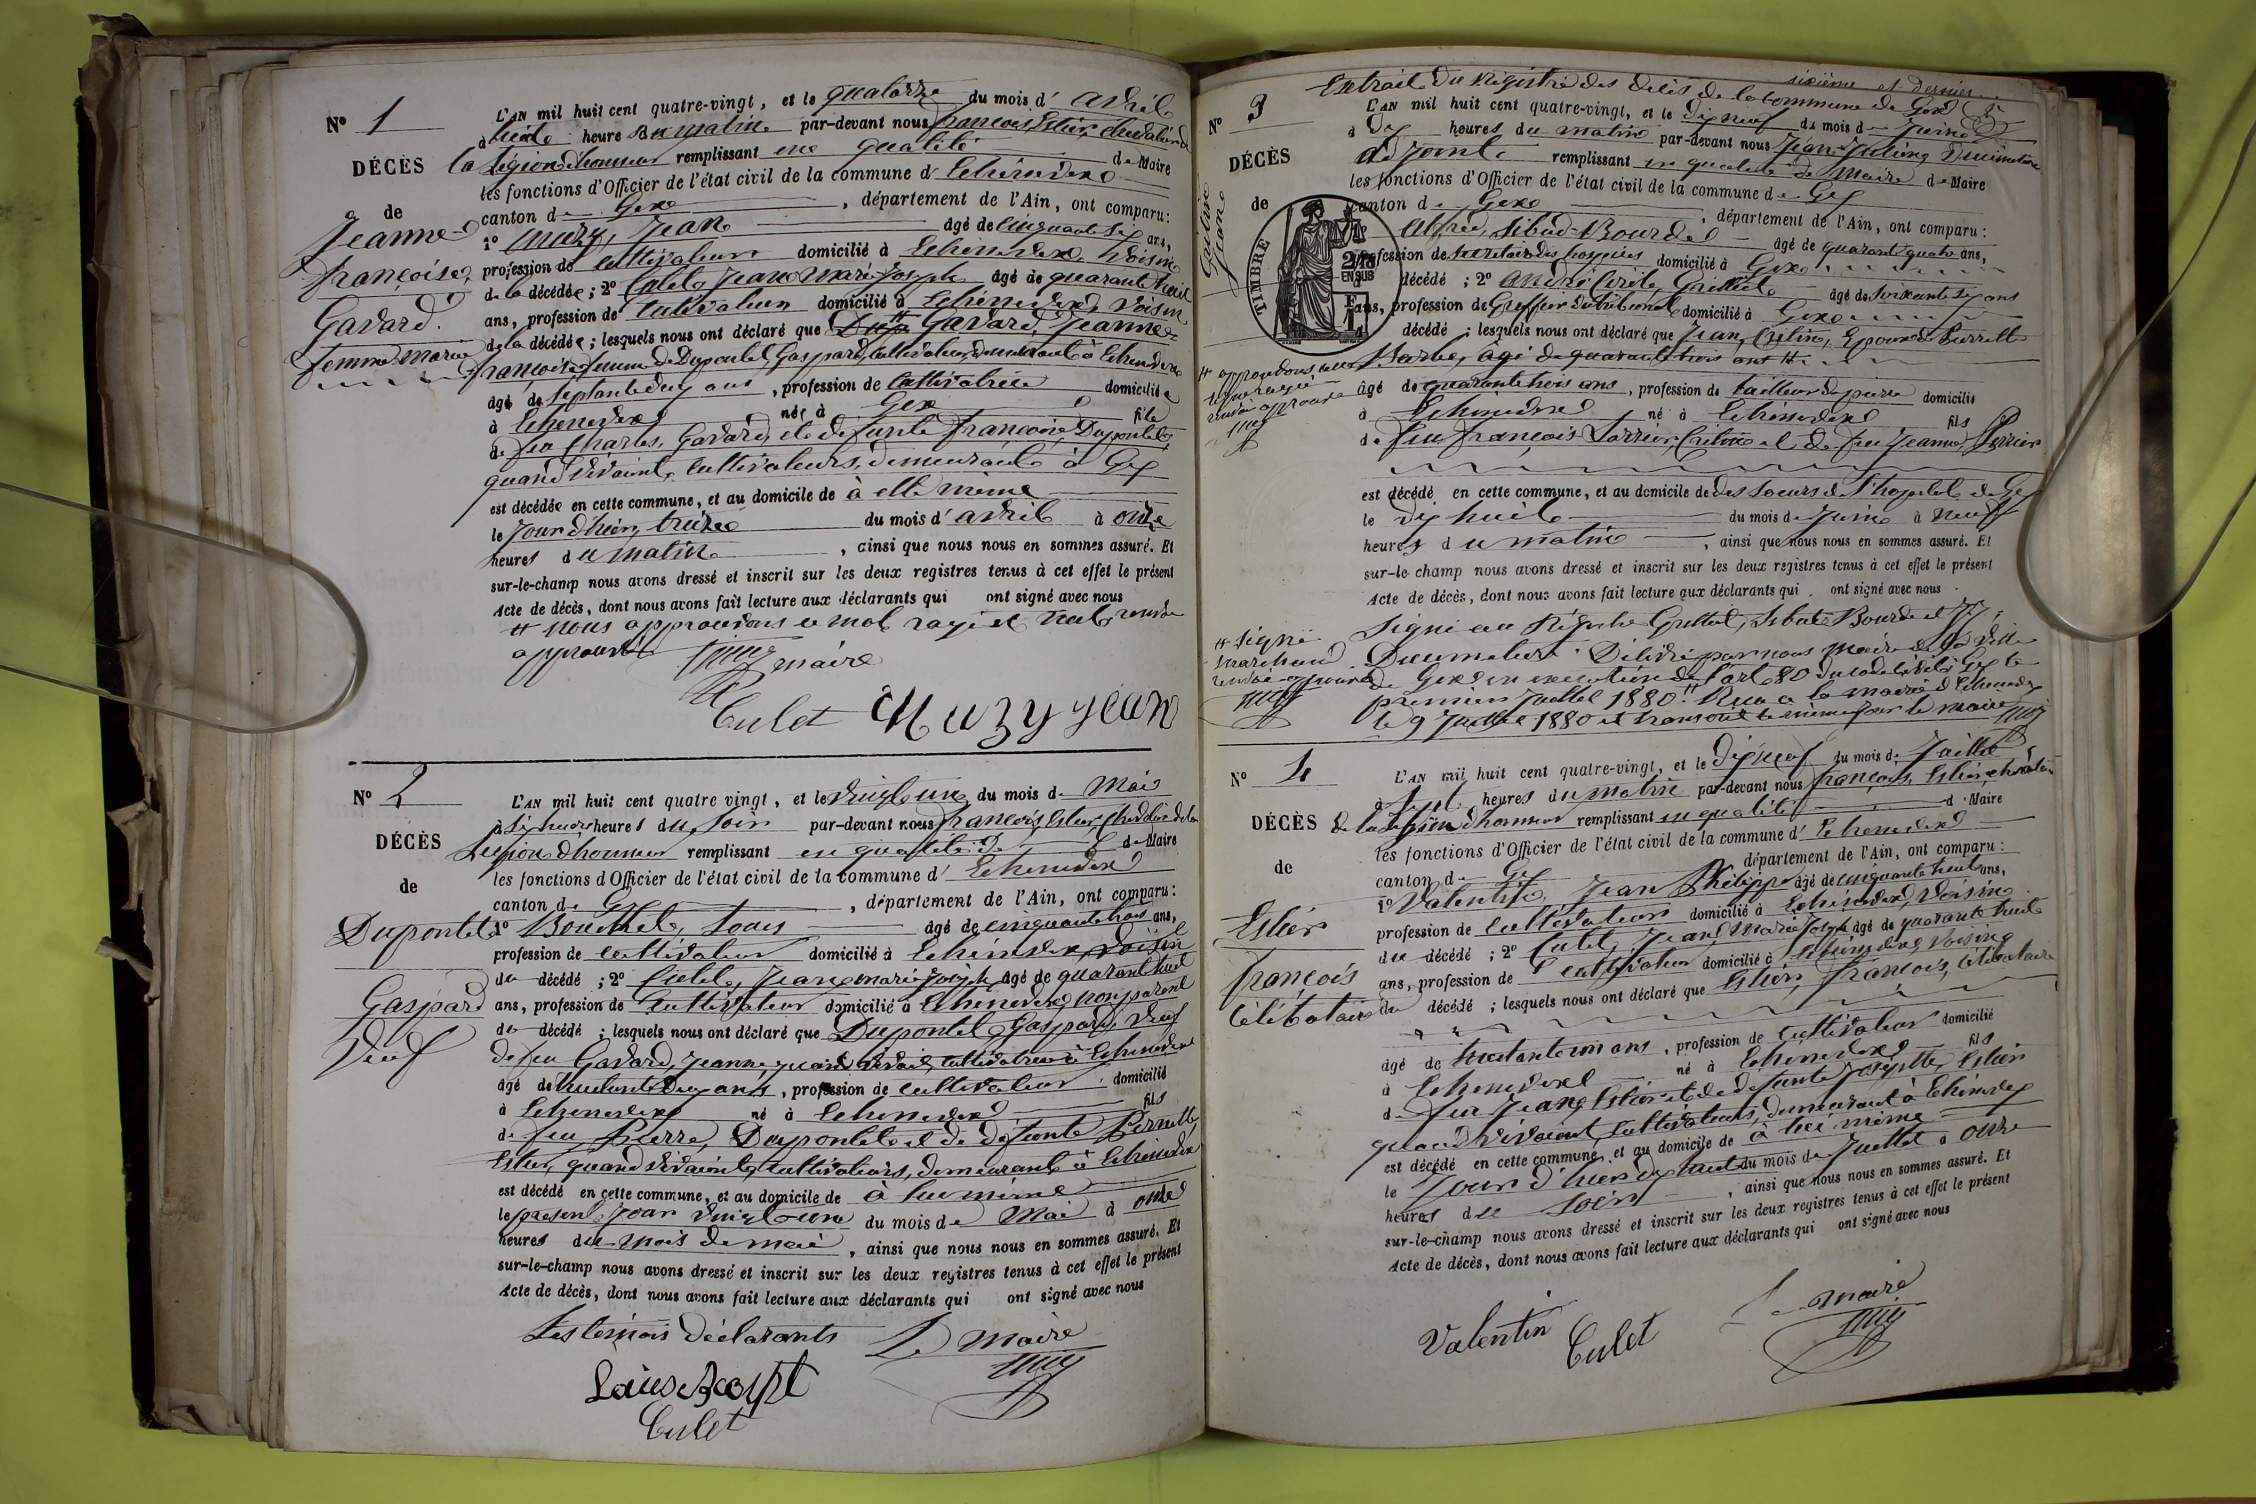 N° 1
DÉCÈS
de
Jeanne
françoise
Gavard.
femme mariée
L'AN mil huit cent quatre-vingt, et le quatorze du mois d' avril
à heure du matin par-devant nous françois Estier chevalier d
la Légion d'honneur remplissant en qualité de Maire
les fonctions d'Officier de l'état civil de la commune d' Echenevex
canton de Gex , département de l'Ain, ont comparu:
1° Muzy, Jean âgé de cinquante six ans,
profession de cultivateur domicilié à Echenevex voisin
de la décédée; 2° Culet Jean Marie Joseph âgé de quarante huit
ans, profession de cultivateur domicilié à Echenevex, voisin
de la décédée; lesquels nous ont déclaré que Gavard, Jeanne
françoise femme de Dupontet, Gaspard, cultivateur demeurant à Echenevex
âgé de septante deux ans , profession de cultivatrice domicilié
à Echenevex née à Gex fille
de feu Charles, Gavard, et de défunte françoise, Dupontet,
quand vivaient cultivateurs, demeurant à Gex
est décédée en cette commune, et au domicile de à elle même
le jour d'hier, treize du mois d' avril à onze
heures du matin , ainsi que nous nous en sommes assuré. Et
sur-le-champ nous avons dressé et inscrit sur les deux registres tenus à cet effet le présent
Acte de décès, dont nous avons fait lecture aux déclarants qui ont signé avec nous
nous approuvons le mot rayé et renvoi
approuvé maire
Culet Muzy jean
N° 2
DÉCÈS
de
Dupontet
Gaspard
Veuf
L'AN mil huit cent quatre vingt, et le vingt une du mois de Mai
à six heures du soir par-devant nous françois, Estier, Chevalier de la
Légion d'honneur remplissant en qualité de de Maire
les fonctions d'Officier de l'état civil de la commune d' Echenevex
canton de Gex , département de l'Ain, ont comparu:
1° Louis âgé de cinquante trois ans,
profession de cultivateur domicilié à Echenevex voisin
du décédé; 2° Culet, Jean marie Joseph âgé de quarante huit
ans, profession de cultivateur domicilié à Echenevex, non parent
du décédé; lesquels nous ont déclaré que Dupontet Gaspard, veuf
de feu Gavard, Jeanne quand vivait cultivatrice à Echenevex
âgé de huitante deux ans, profession de cultivateur domicilié
à Echenevex né à Echenevex fils
de feu Pierre, Dupontet et de défunte Pernette
Estier, quand vivaient, cultivateurs, demeurant à Echenevex
est décédé en cette commune, et au domicile de à lui même
le présent jour vingt une du mois de Mai à onze
heures du mois de mai , ainsi que nous nous en sommes assuré. Et
sur-le-champ nous avons dressé et inscrit sur les deux registres tenus à cet effet le présent
Acte de décès, dont nous avons fait lecture aux déclarants qui ont signé avec nous
Les témoins déclarants Le maire
Louis
Culet
sixième et dernier
Extrait du Registre des décès de la commune de Gex
N° 3
DÉCÈS
de
TIMBRE
EN SUS
L'AN mil huit cent quatre-vingt, et le dix neuf du mois de Juin
à Dix heures du matin par-devant nous Jean
adjoint remplissant en qualité de Maire de Maire
les fonctions d'Officier de l'état civil de la commune de Gex
canton de Gex , département de l'Ain, ont comparu:
Bourdet âgé de quarante quatre ans,
profession de secrétaire des hospices domicilié à Gex
décédé; 2° âgé de soixante six ans
ans, profession de Greffier du tribunal domicilié à Gex
décédé; lesquels nous ont déclaré que Jean,
âgé de quarante trois ans
approuvons
rayée
renvoi approuvé
âgé de quarante trois ans, profession de tailleur de pierre domicilié
à Echenevex né à Echenevex fils
de feu françois et de feu Jeanne, Perrier
est décédé en cette commune, et au domicile de des soeurs de l'hopital de Gex
le dix huit du mois de Juin à neuf
heures du matin , ainsi que nous nous en sommes assuré. Et
sur-le-champ nous avons dressé et inscrit sur les deux registres tenus à cet effet le présent
Acte de décès, dont nous avons fait lecture aux déclarants qui ont signé avec nous
signé
renvoi approuvé
Signé au Registre
Délivré par nous Maire de la ville
de Gex en exécution de l'art. 80 du code civil Gex le
premier Juillet 1880 Reçu à la mairie d'Echenevex
le 9 Juillet 1880 et transcrit le même jour le maire
N° 4
DÉCÈS
de
Estier
françois
célibataire
L'AN mil huit cent quatre-vingt, et le dix neuf du mois de Juillet
à sept heures du matin par-devant nous françois, Estier, chevalier
de la Légion d'honneur remplissant en qualité d Maire
les fonctions d'Officier de l'état civil de la commune d' Echenevex
canton de Gex département de l'Ain, ont comparu:
1° Valentin, Jean Philippe âgé de cinquante huit ans,
profession de cultivateur domicilié à Echenevex, voisin
du décédé; 2° Culet, Jean Marie Joseph âgé de quarante huit
ans, profession de cultivateur domicilié à Echenevex, voisin
du décédé; lesquels nous ont déclaré que Estier, françois, célibataire
âgé de huitante un ans, profession de cultivateur domicilié
à Echenevex né à Echenevex fils
de feu Jean, Estier et de défunte Josephte, Estier
quand vivaient, cultivateurs, demeurant à Echenevex
est décédé en cette commune, et au domicile de à lui même
le jour d'hier dix huit du mois de Juillet à onze
heures du soir , ainsi que nous nous en sommes assuré. Et
sur-le-champ nous avons dressé et inscrit sur les deux registres tenus à cet effet le présent
Acte de décès, dont nous avons fait lecture aux déclarants qui ont signé avec nous
Valentin Culet Le maire